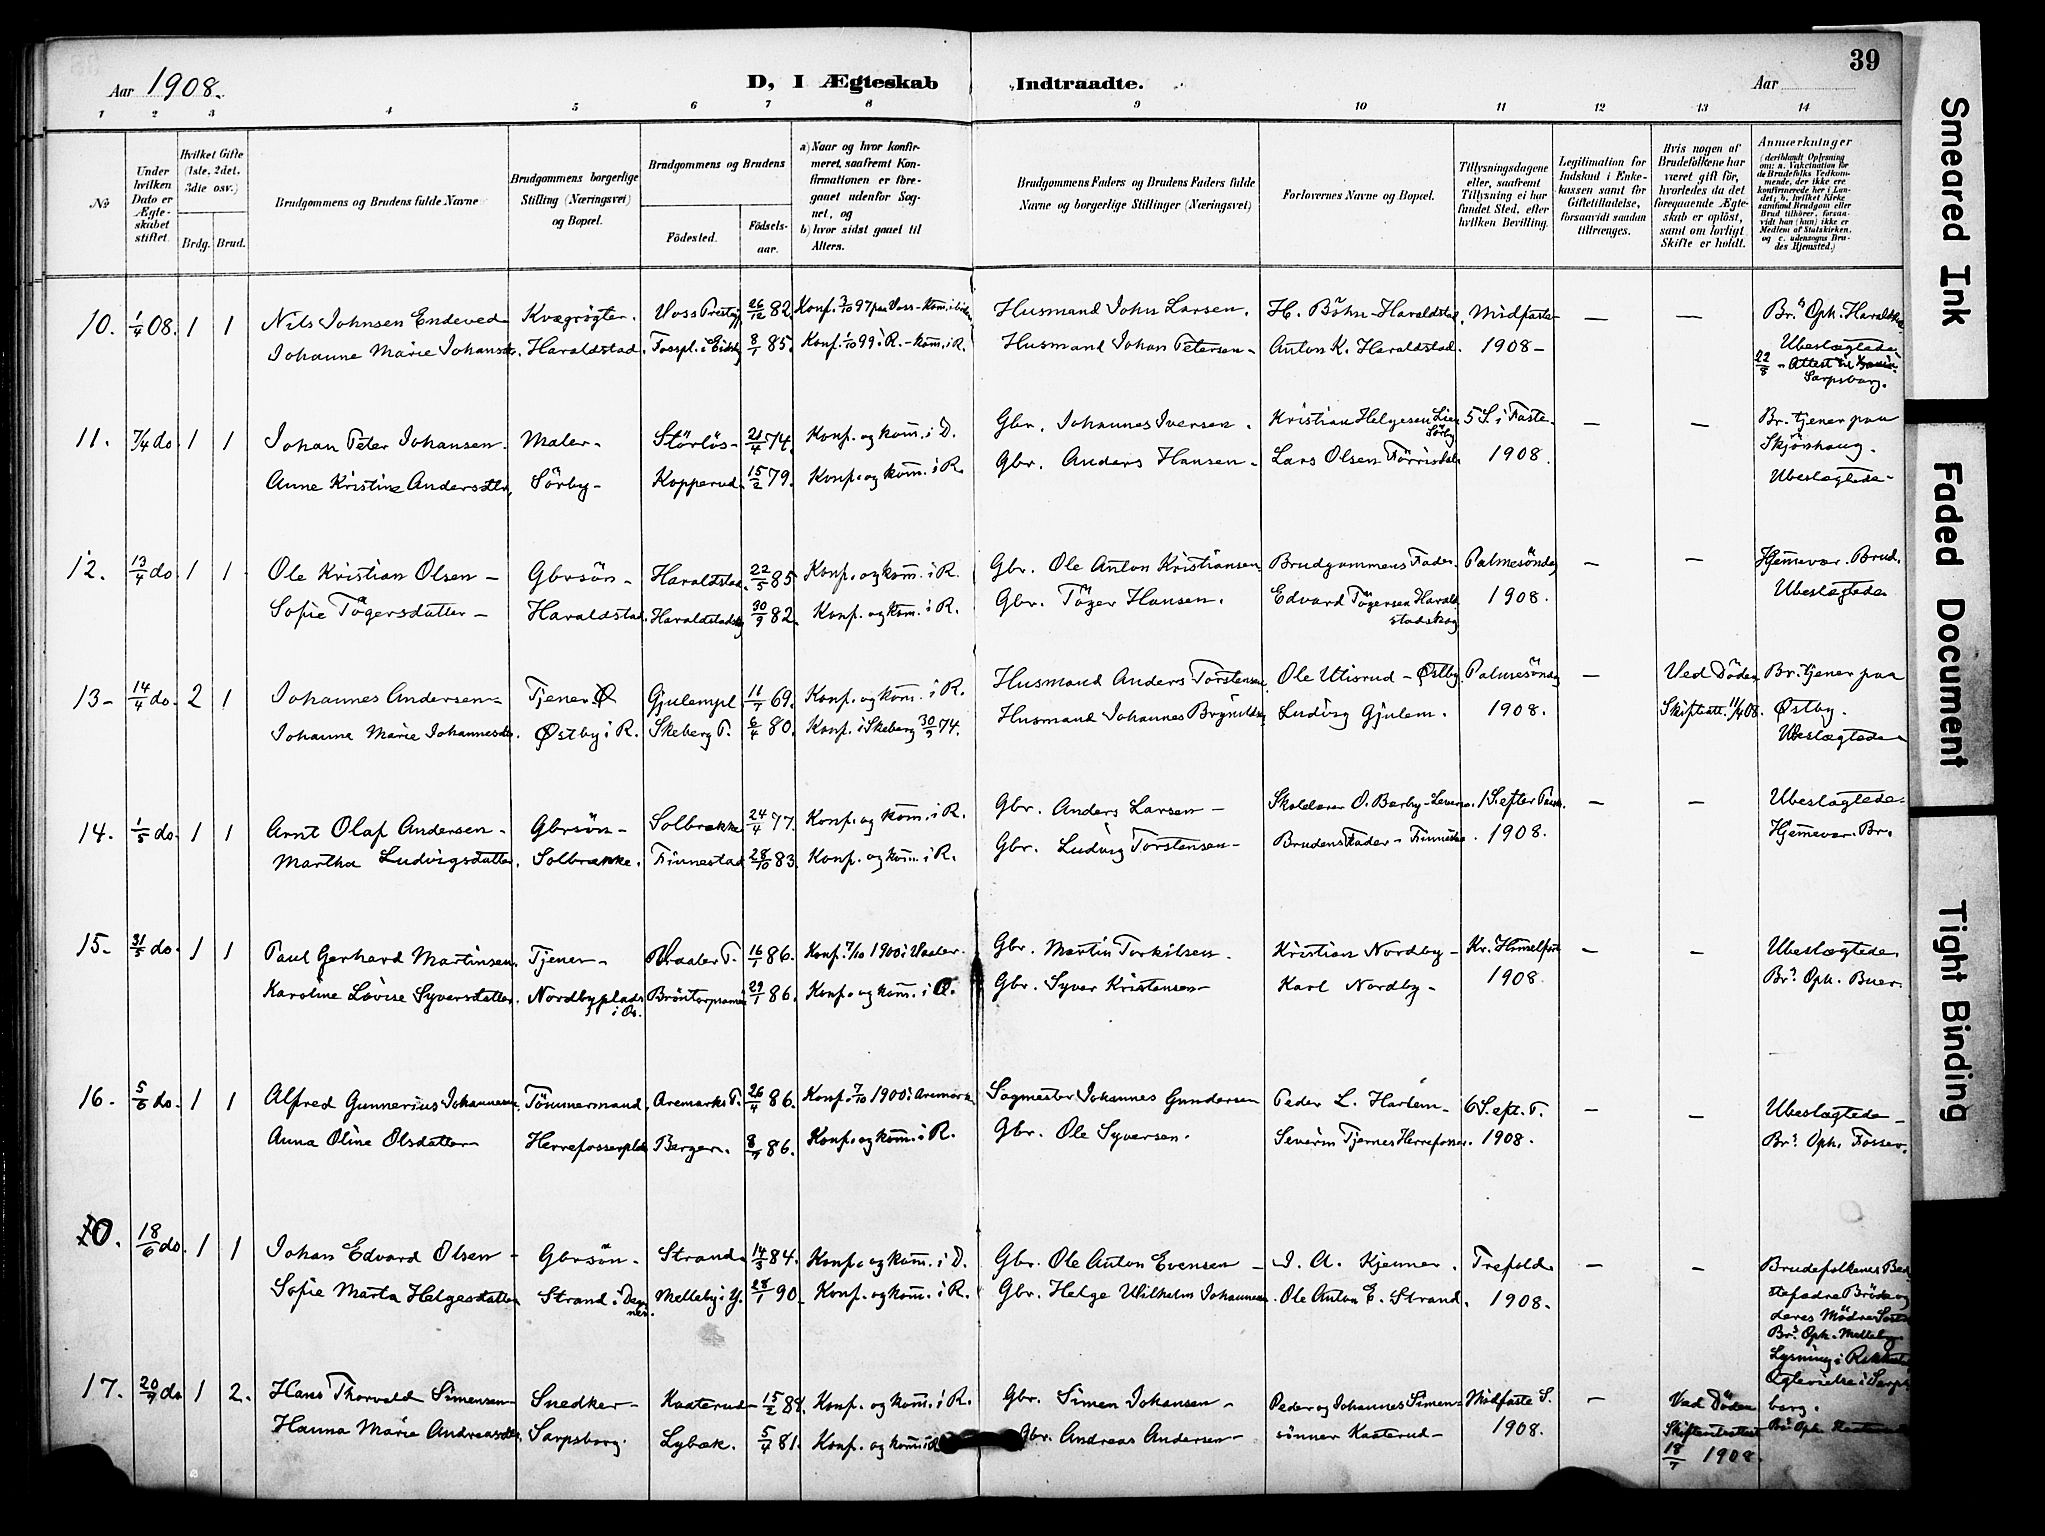 39
Aar 1908.
D, I Ægteskab Indtraadte.
Aar
1 2 3 4 5 6 7 8 9 10 11 12 13 14
No
Under hvilken Dato er Ægteskabet stiftet.
Hvilket Gifte (1ste, 2det, 3die osv.)
Brdg. Brud.
Brudgommens og Brudens fulde Navne
Brudgommens borgerlige Stilling (Næringsvei) og Bopæl.
Brudgommens og Brudens
Födested. Födsels-aar.
a) Naar og hvor konfirmeret, saafremt Konfirmationen er foregaaet udenfor Sognet, og
b) hvor sidst gaaet til Alters.
Brudgommens Faders og Brudens Faders fulde Navne og borgerlige Stillinger (Næringsvei)
Forlovernes Navne og Bopæl.
Tillysningsdagene eller, saafremt Tillysning ei har fundet Sted, efter hvilken Bevilling.
Legitimation for Indskud i Enkekassen samt for Giftetilladelse, forsaavidt saadan tiltrænges.
Hvis nogen af Brudefolkene har været gift før, hvorledes da det foregaaende Ægteskab er oplöst, samt om lovligt Skifte er holdt.
Anmærkninger
(deriblandt Oplysning om: a. Vakcination for de Brudefolks Vedkommende, der ikke ere konfirmerede her i Landet; b. hvilket Kirkesamfund Brudgom eller Brud tilhörer, forsaavidt han (hun) ikke er Medlem af Statskirken, og c. udensogns Brudes Hjemsted.)
10. 1/4 08. 1 1 Nils Johnsen Endeved Kvægrøgter. Voss Prestgj. 26/12 82. Konf. 3/10 97 paa Voss- Husmand John Larsen. H. Böhn-Haraldstad. Midfaste — — Br.s Oph. Haraldst.
Johanne Marie Johansdtr. Haraldstad. Fosspl. i Eidsb. 8/1 85. Konf. 1/10 99 i R. - kom. i R. Husmand Johan Petersen - Anton K. Haraldstad. 1908 - Ubeslægtede
22/5 - Attest til
Sarpsborg.
11. 7/4 do. 1 1 Johan Peter Johansen. Maler - Störlös - 21/4 74. Konf. og kom. i D. Gbr. Johannes Iversen. Kristian Helgesen Lien Sörby 5 S. i Faste. — — Br. tjener paa
Skjörshaug.
Anne Kristine Andersdtr. Sörby - Kopperud. 15/2 79. Konf. og kom. i R. Gbr. Anders Hansen - Lars Olsen Törrisdal. 1908. Ubeslægtede -
12. 13/4 do. 1 1 Ole Kristian Olsen - Gbrsön - Haraldstad. 22/5 85 Konf. og kom. i R. Gbr. Ole Anton Kristiansen Brudgommens Fader. Palmesöndag — — Hjemevær. Brud.
Sofie Tögersdatter - Haraldstad. Haraldstadsk. 30/9 82. Konf. og kom. i R. Gbr. Töger Hansen. Edvard Tögersen Haraldstadskog 1908. Ubeslægtede
13 - 14/4 do. 2 1 Johannes Andersen - Tjener Ø Gjulempl. 11/7 69. Konf. og kom. i R. Husmand Anders Torstensen. Ole Utisrud - Østby. Palmesöndag — Ved Döden Br. tjener paa
Johanne Marie Johannesdtr. Østby i R. Skeberg P. 6/4 80. Konf. i Skeberg 30/9 74. Husmand Johannes Brynilds. Ludvig Gjulem. 1908. Skifteatt. 11/4 08. Østby.
Ubeslægtede
14. 1/5 do. 1 1 Arnt Olaf Andersen - Gbrsön - Solbrække 24/4 77. Konf. og kom. i R. Gbr. Anders Larsen - Skolelærer O. Berby- 1 S. efter Paask. — — Ubeslægtede.
Martha Ludvigsdatter. Solbrække. Finnestad 28/10 83. Konf. og kom. i R. Gbr. Ludvig Torstensen - Brudens Fader - Finnestad. 1908. Hjemevær. Br.
15 - 31/5 do. 1 1 Paul Gerhard Martinsen. Tjener - Vaaler P. 16/1 86. Konf. 7/10 1900 i Vaaler. Gbr. Martin Torkilsen. Kristian Nordby - Kr. Himmelf. — — Ubeslægtede.
Karoline Lovise Syversdatter. Nordbyplads i Os. Bröntorpmoen 29/1 86. Konf. og kom. i R. Gbr. Syver Kristensen - Karl Nordby - 1908. Br.s Oph. Buer.
16. 5/6 do. 1 1 Alfred Gunnerius Johannesen. Tömmermand. Aremark P. 26/4 86. Konf. 7/10 1900 i Aremark Sagmester Johannes Gundersen Peder L. Harlem - 6 S. eft. P. — — Ubeslægtede -
Anna Oline Olsdatter - Herrefosserplds. Berger. 8/7 86. Konf. og kom. i R. Gbr. Ole Syversen. Severin Tjernes Herrefosser. 1908. Br.s Oph. Fosser.
10. 18/6 do. 1 1 Johan Edvard Olsen - Gbrsön - Strand. 14/3 84. Konf. og kom. i D. Gbr. Ole Anton Evensen - I. A. Kjenner. Trefold. — — Brudefolkenes Bed-
Sofie Marta Helgesdatter Strand i Degernes. Melleby i 28/1 90. Konf. og kom. i R. Gbr. Helge Wilhelm Johannesen. Ole Anton E. Strand. 1908. stefædre Bröde og
deres Mödre Söst.
Br.s Oph. Melleby.
Lysning i Rakkestad
17. 20/7 do 1 2. Hans Thorvald Simensen - Snedker - Kasterud - 15/2 84. Konf. og kom. i R. Gbr. Simen Johansen - Peder og Johannes Simen- Midfaste S. — Ved Döden
Hanna Marie Andreasdtr. Sarpsborg. Lybæk. 5/7 81. Konf. og kom. i Gbr. Andreas Andersen - sönner Kasterud - 1908. Skifteattest
18/7 1908.
Ægtevielse i Sarps-
borg.
Br. Oph. Kasterud
Smeared Ink
Faded Document
Tight Binding